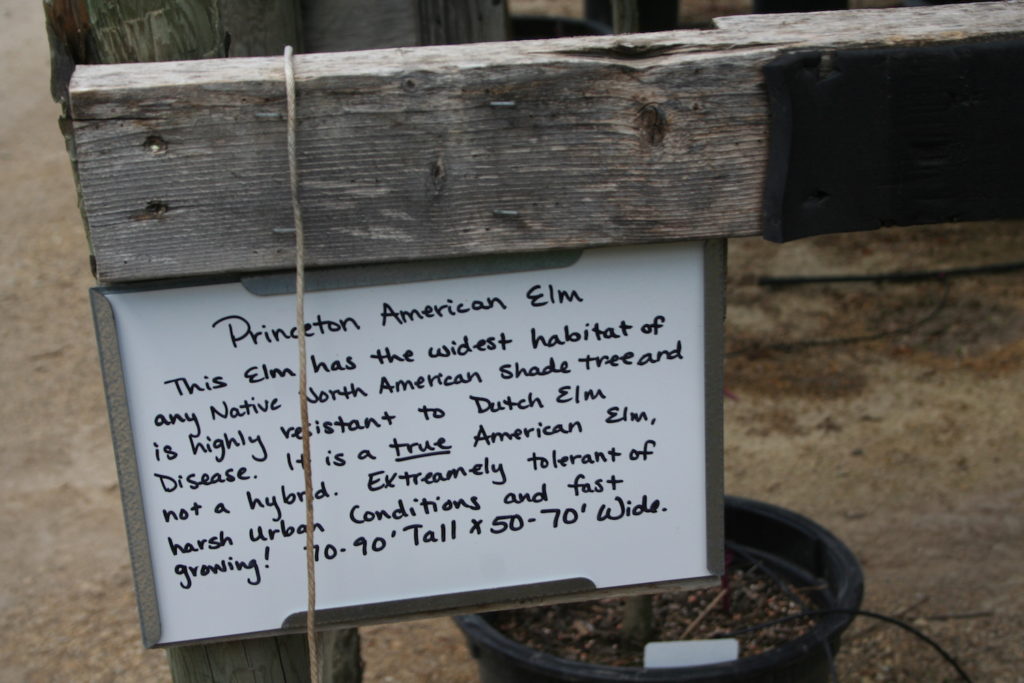 Princeton American Elm
This Elm has the widest habitat of
any Native North American Shade tree and
is highly resistant to Dutch Elm
Disease. It is a true American Elm,
not a hybrid. Extreamely tolerant of
harsh Urban Conditions and fast
growing! 70-90' Tall x 50-70' Wide.